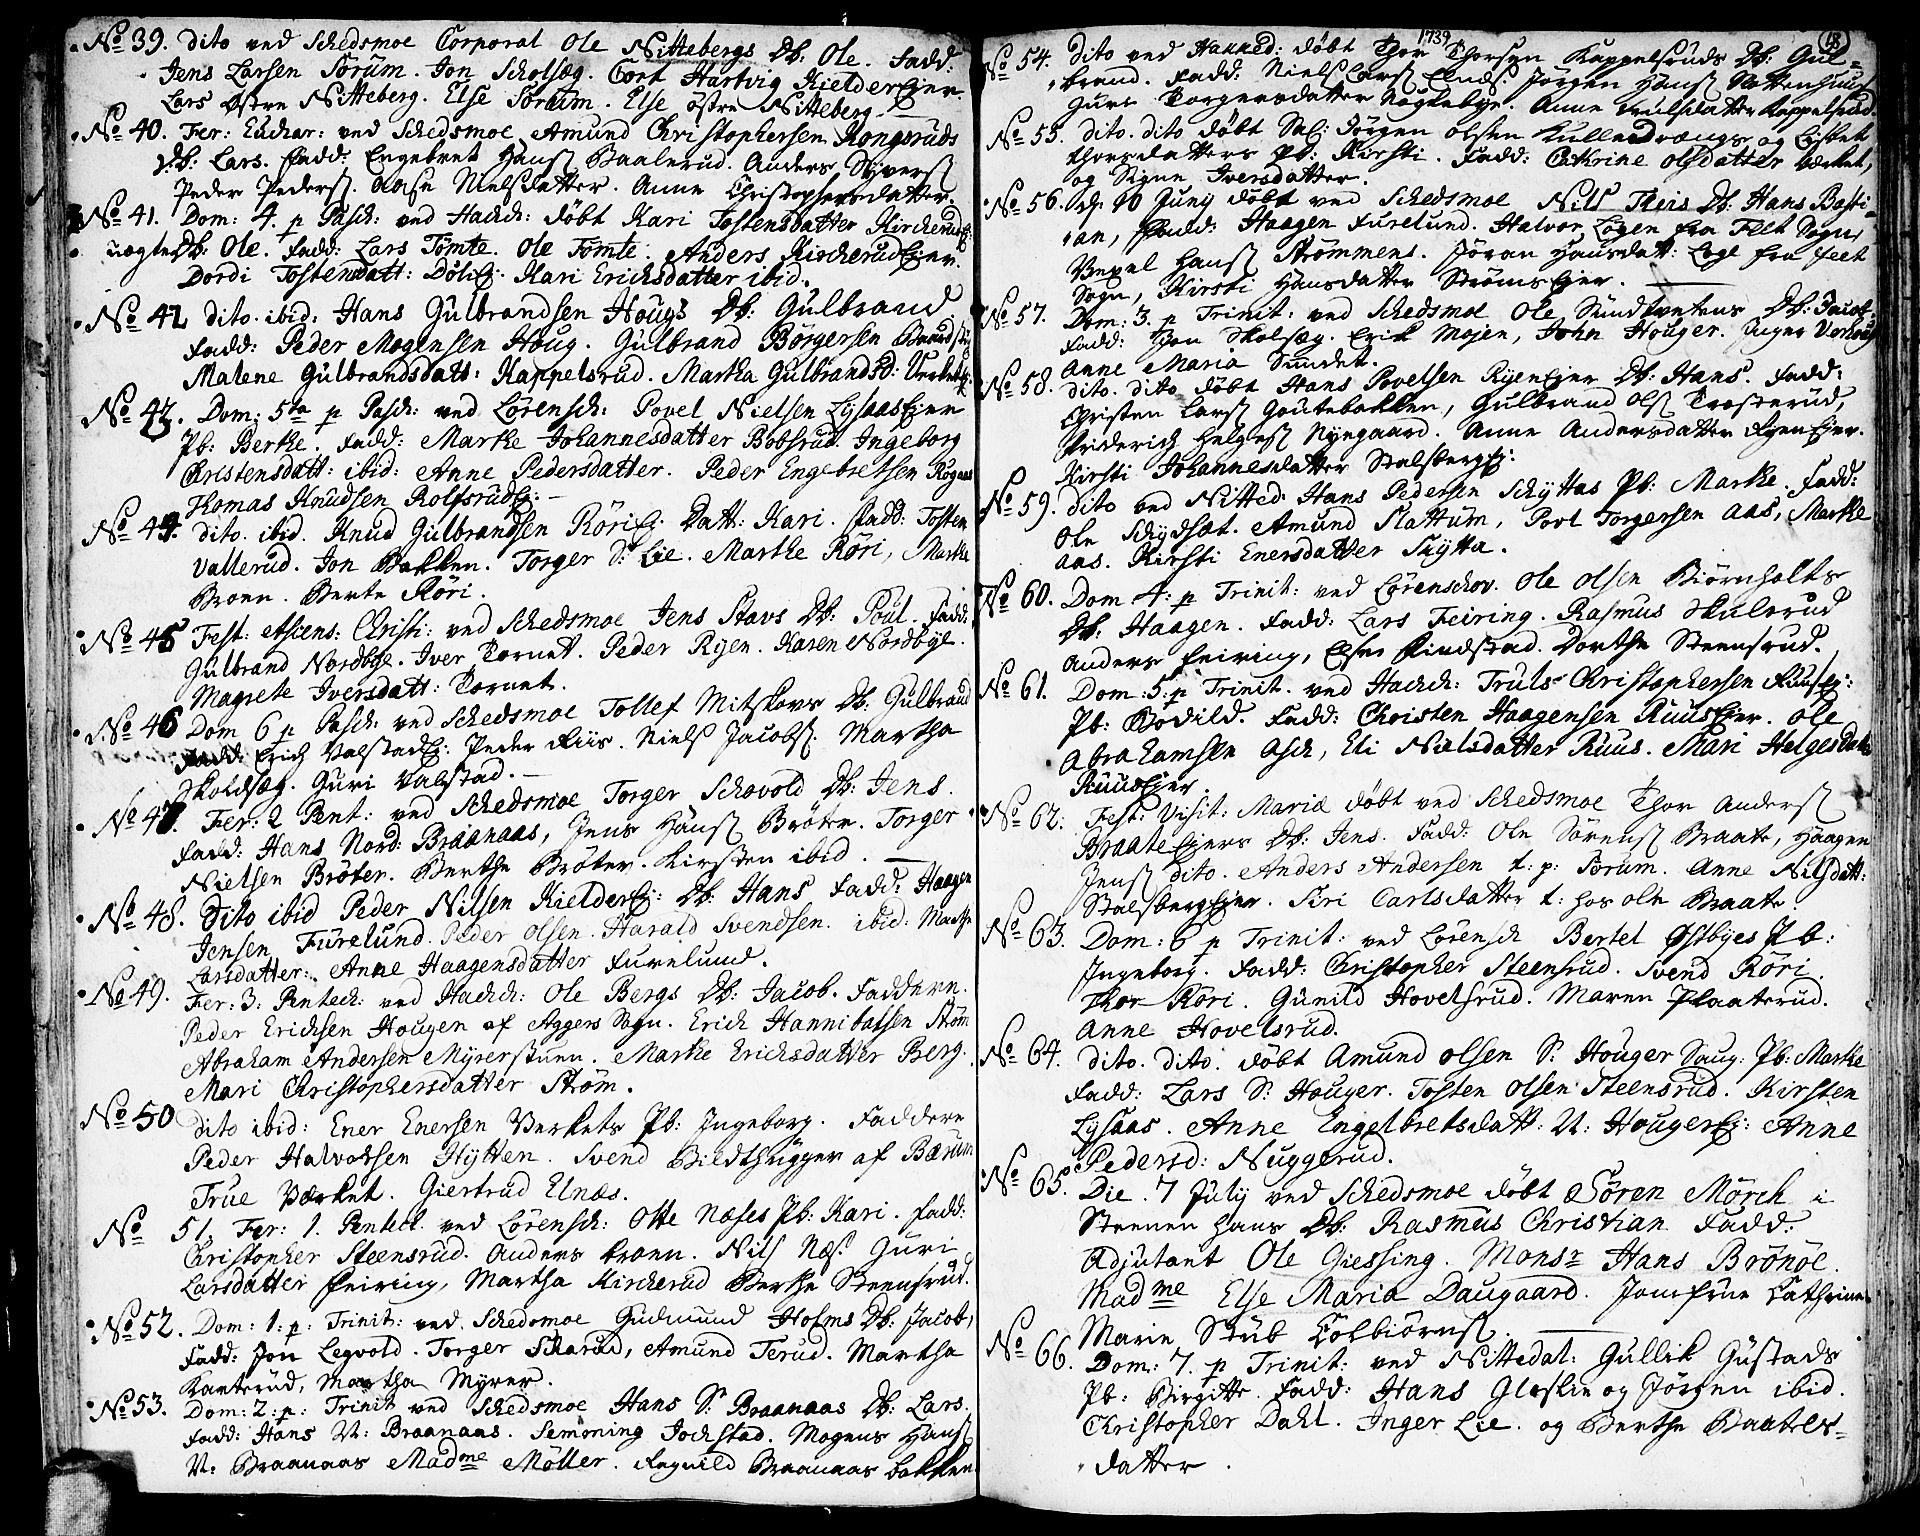 No 39. dito ved Schedsmoe Corporal Ole Nittebergs Db: Ole. Fadd:
Jens Larsen Sørum. Jon Scholseg. Cort Hartvig Kielder Eier.
Lars Østre Nitteberg. Else Sørum. Else østre Nitteberg.
No 40. Fer: Euchar: ved Schedsmoe Amund Christophersen Kongsruds
Db: Lars. Fadd: Engebret Hans Baalerud. Anders Syvers
Peder Peders. Aase Nielsdatter. Anne Christophersdatter.
No 41. Dom: 4. p Pasch: ved Hachd: døbt Kari Tostensdatter Kircherud
uægte Db: Ole. Fadd: Lars Tomte. Ole Tomte. Anders Kircherud Eier.
Dordi Tostensdatt: Døli E: Kari Erichsdatter ibid.
No 42 dito. ibid: Hans Gulbrandsen Hougs Db: Gulbrand
Fadd: Peder Mogensen Houg. Gulbrand Børgersen
Malene Gulbrandsdatt: Kappelsrud. Martha Gulbrandsd:
No 43. Dom: 5ta p Pasch: ved Lørensch: Povel Nielsen Lysaas Eier
Pb: Berthe. Fadd: Marthe Johannesdatter Bobsrud. Ingeborg
Christensdatt: ibid: Anne Pedersdatter. Peder Engebretsen
Thomas Knudsen Rolfsrud E: —
No 44. dito. ibid. Knud Gulbrandsen Röri E: Datt: Kari. Fadd: Tosten
Vallerud. Jon Bakken. Torger S: Lie. Marthe Röri, Marthe
Broen. Berte Röri.
No 45 Fest: Ascens: Christi: ved Schedsmoe Jens Stavs Db: Poul. Fadd:
Gulbrand Nordbye. Iver Tornet. Peder Ryen. Karen Nordbye.
Magrete Iversdatt: Tornet.
No 46 Dom 6 p Pasch: ved Schedsmoe Tollef Mitskovs Db: Gulbrand
Fadd: Erich Valstad E: Peder Riis. Niels Jacobs. Martha
Skoldseg. Guri Valstad. —
No 47. Fer: 2 Pent: ved Schedsmoe Torger Schovold Db: Jens.
Fadd: Hans Nord: Braanaas, Jens Hans Bröter. Torger
Nielsen Bröter. Berthe Bröter. Kirsten ibid. —
No 48. Dito ibid Peder Nilsen Kielder E: Db: Hans Fadd: Haagen
Jensen Furelund. Peder Olsen. Harald Svendsen. ibid. Marthe
Larsdatter. Anne Haagensdatter Furelund.
No 49. Fer: 3: Pentech: ved Hachd: Ole Bergs Db: Jacob. Faddern.
Peder Erichsen Hougen af Aggers Sogn. Erich Hannibalsen Ström
Abraham Andersen Myrerstuen. Marthe Erichsdatter Berg.
Mari Christophersdatter Ström.
No 50 dito ibid: Ener Enersen Verkets Pb: Ingeborg. Faddere
Peder Halvorsen Hytten. Svend Bildthugger af Bærum
True Værket. Giertrud Elnæs.
No 51. Fer: 1. Pentech. ved Lørensch: Otte Næses Pb: Kari. Fadd:
Christopher Steensrud. Anders broen. Nils Næs. Guri
Larsdatter Feiring, Martha Kircherud Berthe Steensrud.
No 52. Dom: 1: p: Trinit: ved Schedsmoe Gudmund Holms Db: Jacob,
Fadd: Jon Legvold. Torger Skarud, Amund Terud. Martha
Kanterud, Martha Myrer.
No 53. Dom: 2: p: Trinit ved Schedsmoe Hans S: Braanaas Db: Lars.
Fadd: Hans N: Braanaas. Semoning Jochstad. Mogens Hans
N: Braanaas Madme Möller. Ragnild Braanaas bakken
1739
48
No 54. dito ved Hakked: døbt Thor Thorsen Kappelsruds Db: Gul=
brand. Fadd: Niels Lars Elnæs. Jørgen Hans
Guro Torgersdatter Anne Trulsdatter Kappelsrud.
No 55. dito. dito døbt Sal: Jørgen Olsen og Lisbet
Thorsdatters Pb: Kirsti. Fadd: Cathrine Olsdatter værket,
og Signe Iversdatter.
No 56. d: 10 Juny døbt ved Schedsmoe Nils Theis Db: Hans Basti=
an, Fadd: Haagen Furelund. Halvor Løgen fra Feet Sogn,
Vexel Hans Strømmens. Jøran Hansdatt: Løge fra Feet
Sogn, Kirsti Hansdatter Strøms Eier. —
No 57. Dom: 3. p Trinit: ved Schedsmoe Ole Sundtuetens Db: Jacob.
Fadd: Jon Skolseg. Erik Mojen, John Houger. Inger
Anne Maria Sundet.
No 58. dito. dito døbt Hans Povelsen Ryen Eier Db: Hans. Fadd:
Christen Lars Goutebakken, Gulbrand Ols Trosterud,
Friderich Helges Nyegaard. Anne Andersdatter Ryen Eier.
Kirsti Johannesdatter Stalsberg E:
No 59. dito ved Nitted: Hans Pedersen Schyttas Pb: Marthe. Fadd:
Ole Schydsæt. Amund Slattum, Povl Torgersen Aas, Marthe
Aas. Kirsti Enersdatter Skytta.
No 60. Dom 4: p Trinit: ved Lørenschov. Ole Olsen Biørnholts
Db: Haagen. Fadd: Lars Feiring. Rasmus Skulerud
Anders Feiring, Else Rindstad. Dorthe Steensrud.
No 61. Dom: 5: p Trinit. ved Hachd: Truls Christophersen Ruus E:
Pb: Bodild. Fadd: Christen Haagensen Ruus Eier. Ole
Abrahamsen Asch, Eli Nielsdatter Ruus. Mari Helgesdatter
Ruus Eier.
No 62. Fest: Visit: Mariæ døbt ved Schedsmoe Thor Anders
Braate Eiers Db: Jens. Fadd: Ole Sørens Braate, Haagen
Jens dito. Anders Andersen t: p: Sørum. Anne Nilsdatt:
Stalsberg Eier. Siri Carlsdatter t: hos Ole Braate.
No 63. Dom: 6 p Trinit: ved Lørensch Bertel Østbyes Pb:
Ingeborg. Fadd: Christopher Steensrud. Svend Röri.
Thor Röri. Gunild Hovelsrud. Maren Plaaterud.
Anne Hovelsrud.
No 64. dito. dito. døbt Amund Olsen S: Houger Saug: Pb: Marthe
Fadd: Lars S: Houger. Tosten Olsen Steensrud. Kirsten
Lysaas. Anne Engelbretsdatt: N: Houger E: Anne
Pedersd: Nuggerud.
No 65. Die. 7 July ved Schedsmoe døbt Sören Mörch i
Steenen Hans Db: Rasmus Christian Fadd:
Adjutant Ole Giessing. Monsr Hans Brönöe.
Madme Else Maria Daugaard. Jomfrue Cathrine
Marie Stüb Colbiörns.
No 66. Dom: 7. p Trinit: ved Nittedal: Gullik Güstads
Pb: Birgitte. Fadd: Hans Gleskin og Jörgen ibid.
Christopher Dahl. Inger Lie. og Berthe Baatels=
datter.